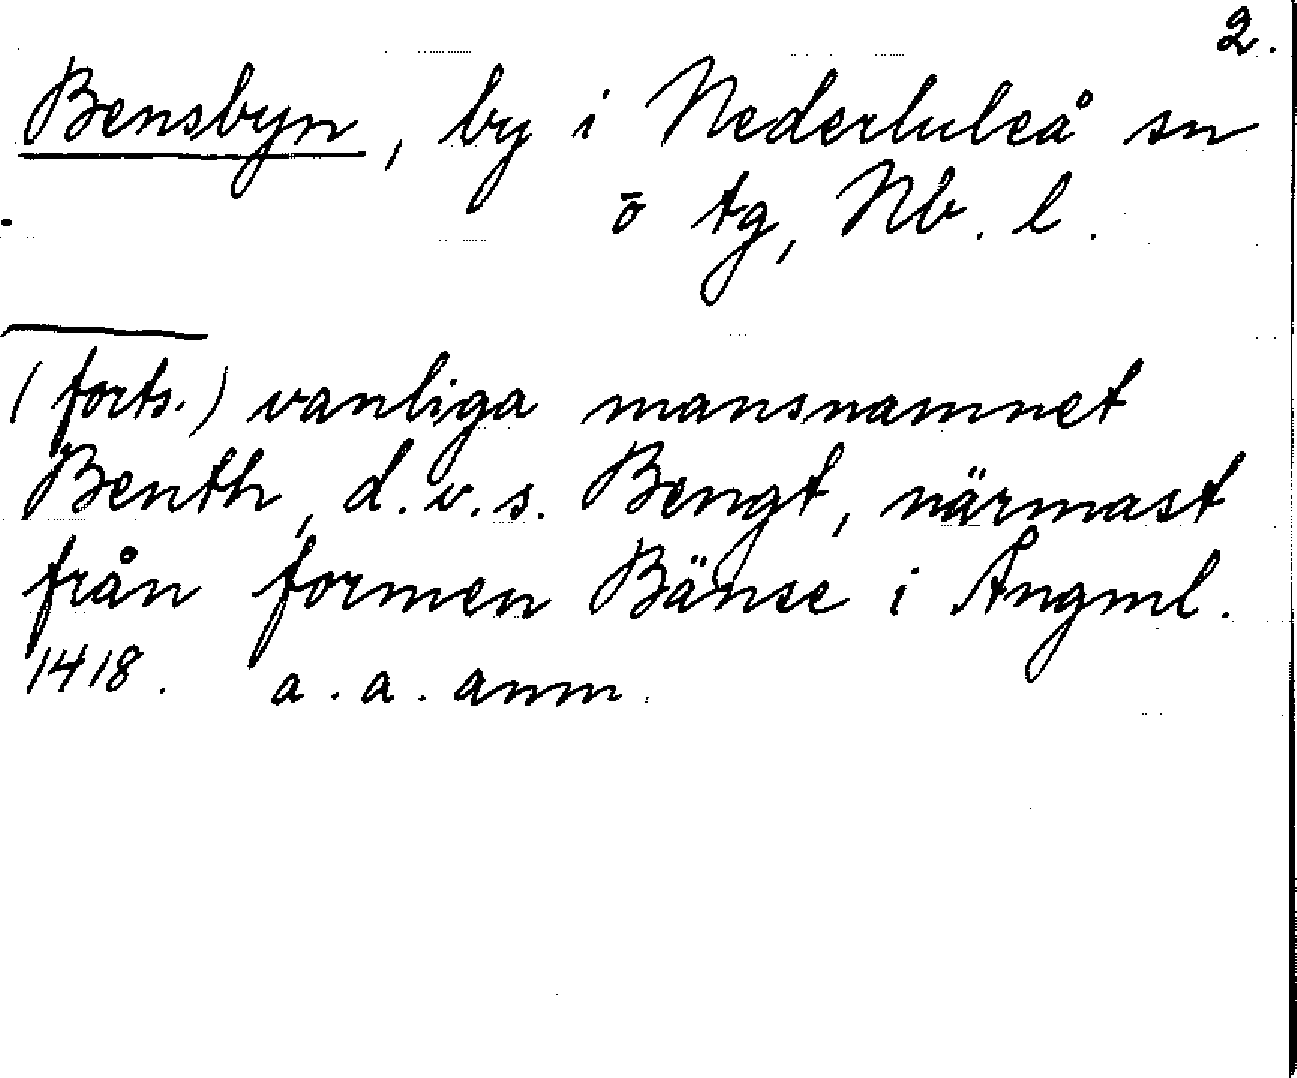 2.
Bensbyn, by i Nederluleå sn
ö tg, Nb. l.
(forts.) vanliga mansnamnet
Benth, d.v.s. Bengt, närmast
från formen Bänse i Ångml.
1418. a.a. anm.